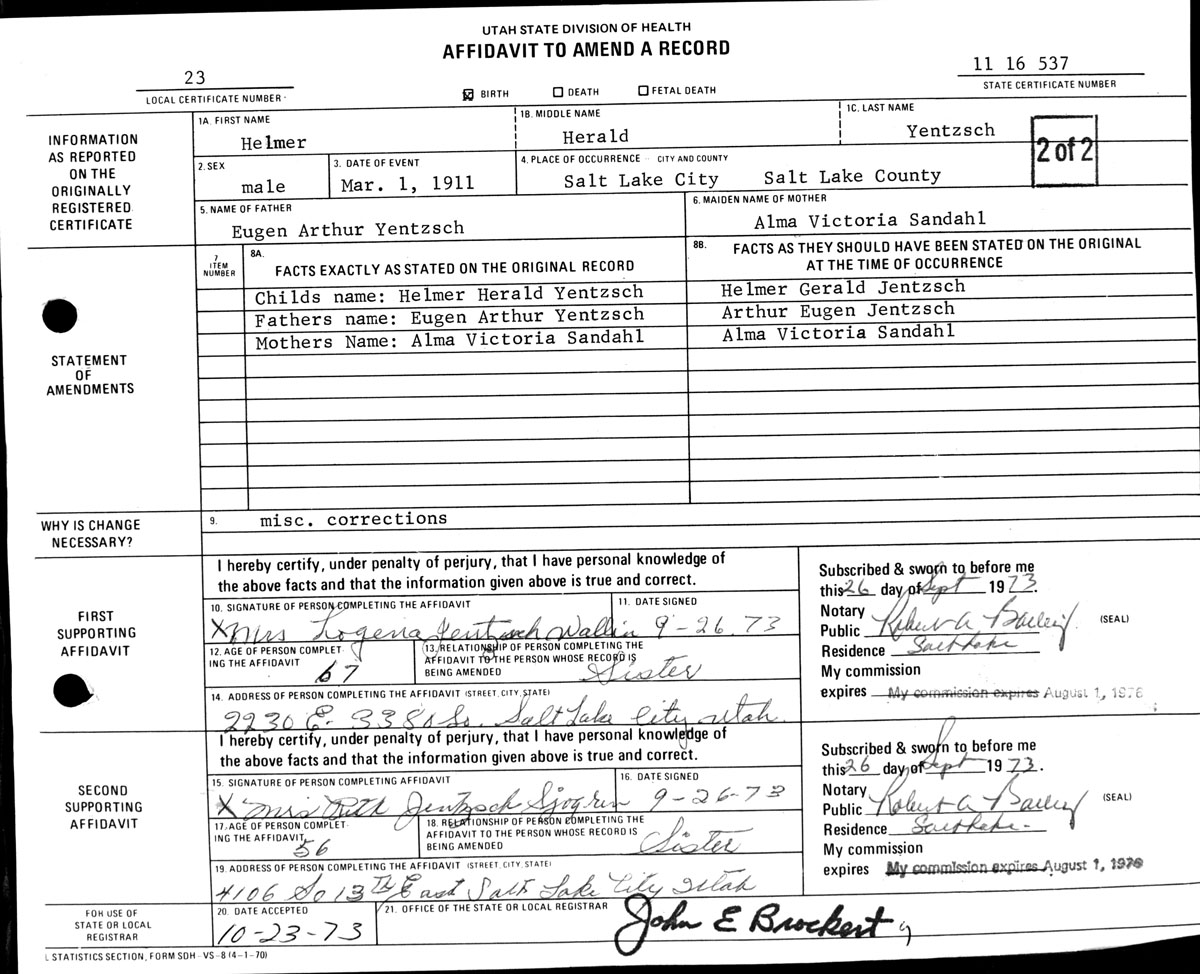 UTAH STATE DIVISION OF HEALTH
AFFIDAVIT TO AMEND A RECORD
23
LOCAL CERTIFICATE NUMBER
☒ BIRTH ☐ DEATH ☐ FETAL DEATH
11 16 537
STATE CERTIFICATE NUMBER
INFORMATION
AS REPORTED
ON THE
ORIGINALLY
REGISTERED
CERTIFICATE
1A. FIRST NAME
Helmer
1B. MIDDLE NAME
Herald
1C. LAST NAME
Yentzsch
2 of 2
2. SEX
male
3. DATE OF EVENT
Mar. 1, 1911
4. PLACE OF OCCURRENCE CITY AND COUNTY
Salt Lake City Salt Lake County
5. NAME OF FATHER
Eugen Arthur Yentzsch
6. MAIDEN NAME OF MOTHER
Alma Victoria Sandahl
STATEMENT
OF
AMENDMENTS
7
ITEM
NUMBER
8A.
FACTS EXACTLY AS STATED ON THE ORIGINAL RECORD
8B.
FACTS AS THEY SHOULD HAVE BEEN STATED ON THE ORIGINAL
AT THE TIME OF OCCURRENCE
Childs name: Helmer Herald Yentzsch Helmer Gerald Jentzsch
Fathers name: Eugen Arthur Yentzsch Arthur Eugen Jentzsch
Mothers Name: Alma Victoria Sandahl Alma Victoria Sandahl
WHY IS CHANGE
NECESSARY?
9. misc. corrections
FIRST
SUPPORTING
AFFIDAVIT
I hereby certify, under penalty of perjury, that I have personal knowledge of
the above facts and that the information given above is true and correct.
10. SIGNATURE OF PERSON COMPLETING THE AFFIDAVIT
X Mrs Logena Jentzsch Wallin
11. DATE SIGNED
9-26.73
12. AGE OF PERSON COMPLET-
ING THE AFFIDAVIT
67
13. RELATIONSHIP OF PERSON COMPLETING THE
AFFIDAVIT TO THE PERSON WHOSE RECORD IS
BEING AMENDED
Sister
14. ADDRESS OF PERSON COMPLETING THE AFFIDAVIT (STREET, CITY, STATE)
2230 E. 3380 So. Salt Lake City Utah.
Subscribed & sworn to before me
this 26 day of Sept 1973.
Notary
Public Robert A Bailey (SEAL)
Residence Salt Lake
My commission
expires My commission expires August 1, 1976
SECOND
SUPPORTING
AFFIDAVIT
I hereby certify, under penalty of perjury, that I have personal knowledge of
the above facts and that the information given above is true and correct.
15. SIGNATURE OF PERSON COMPLETING AFFIDAVIT
X Mrs Ruth Jentzsch Sjogren
16. DATE SIGNED
9-26-73
17. AGE OF PERSON COMPLET-
ING THE AFFIDAVIT
56
18. RELATIONSHIP OF PERSON COMPLETING THE
AFFIDAVIT TO THE PERSON WHOSE RECORD IS
BEING AMENDED
Sister
19. ADDRESS OF PERSON COMPLETING THE AFFIDAVIT (STREET, CITY, STATE)
4106 So 13th East Salt Lake City Utah
Subscribed & sworn to before me
this 26 day of Sept 1973.
Notary
Public Robert A Bailey (SEAL)
Residence Salt Lake
My commission
expires My commission expires August 1, 1976
FOR USE OF
STATE OR LOCAL
REGISTRAR
20. DATE ACCEPTED
10-23-73
21. OFFICE OF THE STATE OR LOCAL REGISTRAR
John E Brockert
L STATISTICS SECTION, FORM SDH-VS-8 (4-1-70)